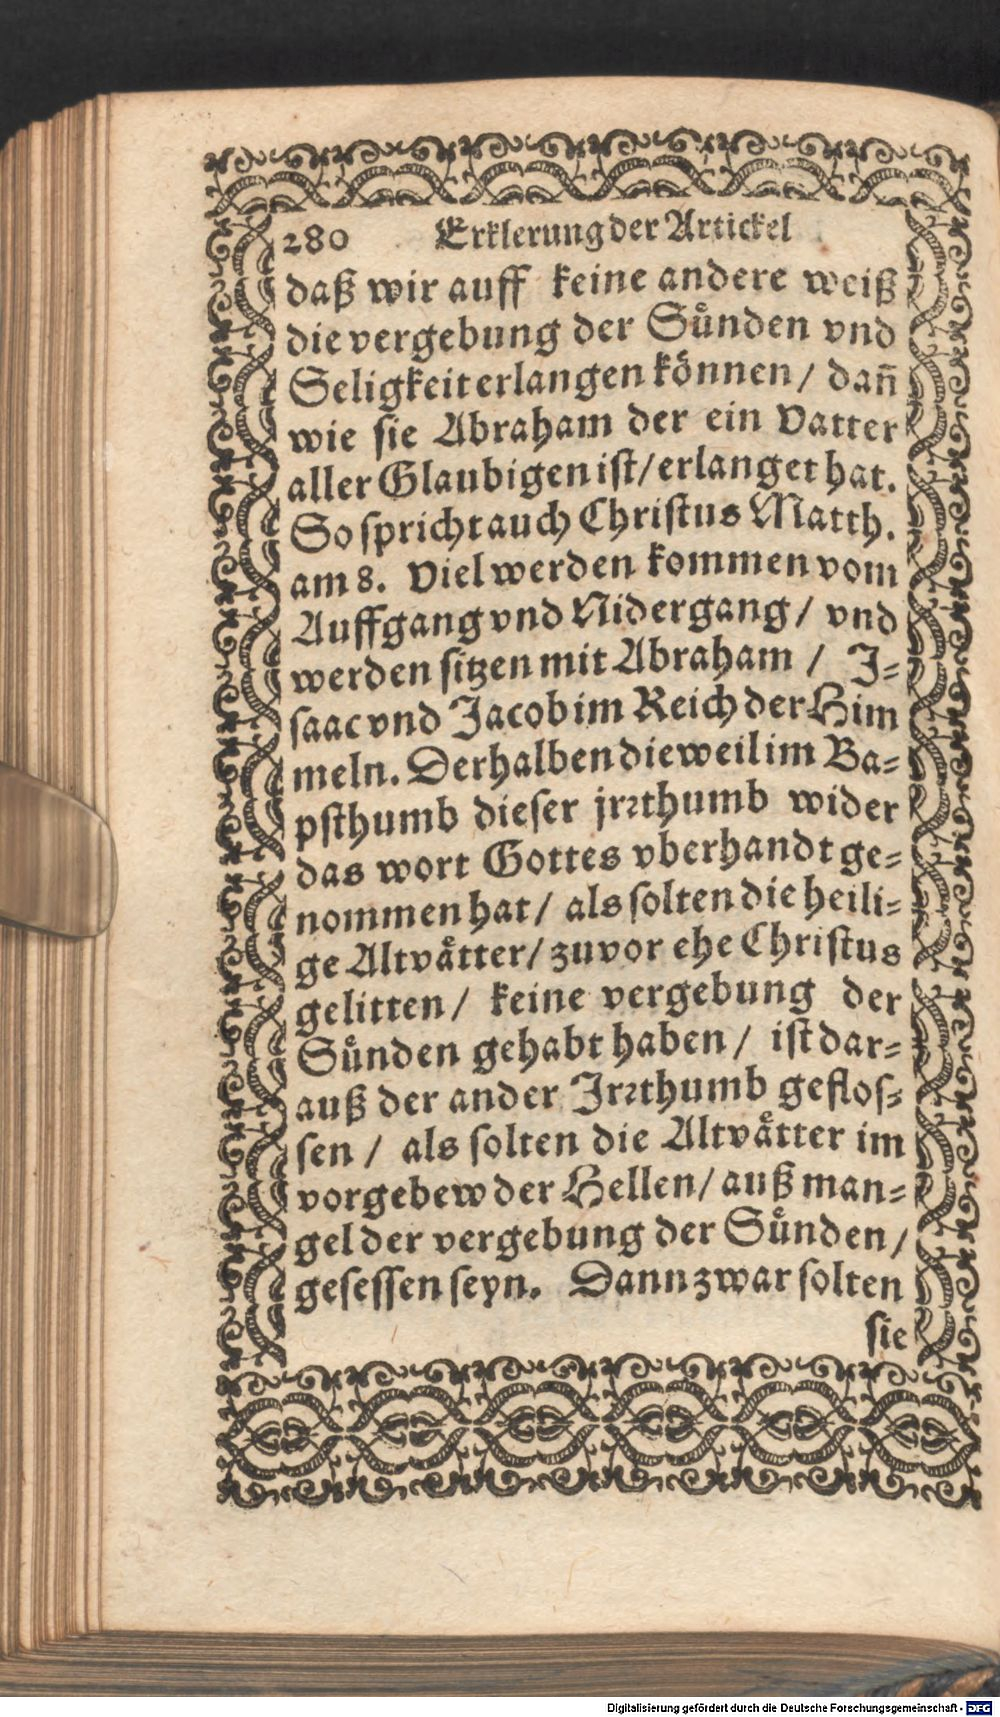 280 Erklerung der Artickel
daß wir auff keine andere weiß
die vergebung der Suͤnden vnd
Seligkeit erlangen koͤnnen / dañ
wie sie Abraham der ein Vatter
aller Glaubigen ist / erlanget hat.
So spricht auch Christus Matth.
am 8. Viel werden kommen vom
Auffgang vnd Nidergang / vnd
werden sitzen mit Abraham / J-
saac vnd Jacob im Reich der Him
meln. Derhalben dieweil im Ba-
psthumb dieser jrꝛthumb wider
das wort Gottes vberhandt ge-
nommen hat / als solten die heili-
ge Altvaͤtter / zuvor ehe Christus
gelitten / keine vergebung der
Suͤnden gehabt haben / ist dar-
auß der ander Jrꝛthumb geflos-
sen / als solten die Altvaͤtter im
vorgebew der Hellen / auß man-
gel der vergebung der Suͤnden /
gesessen seyn. Dann zwar solten
sie
Digitalisierung gefördert durch die Deutsche Forschungsgemeinschaft - DFG